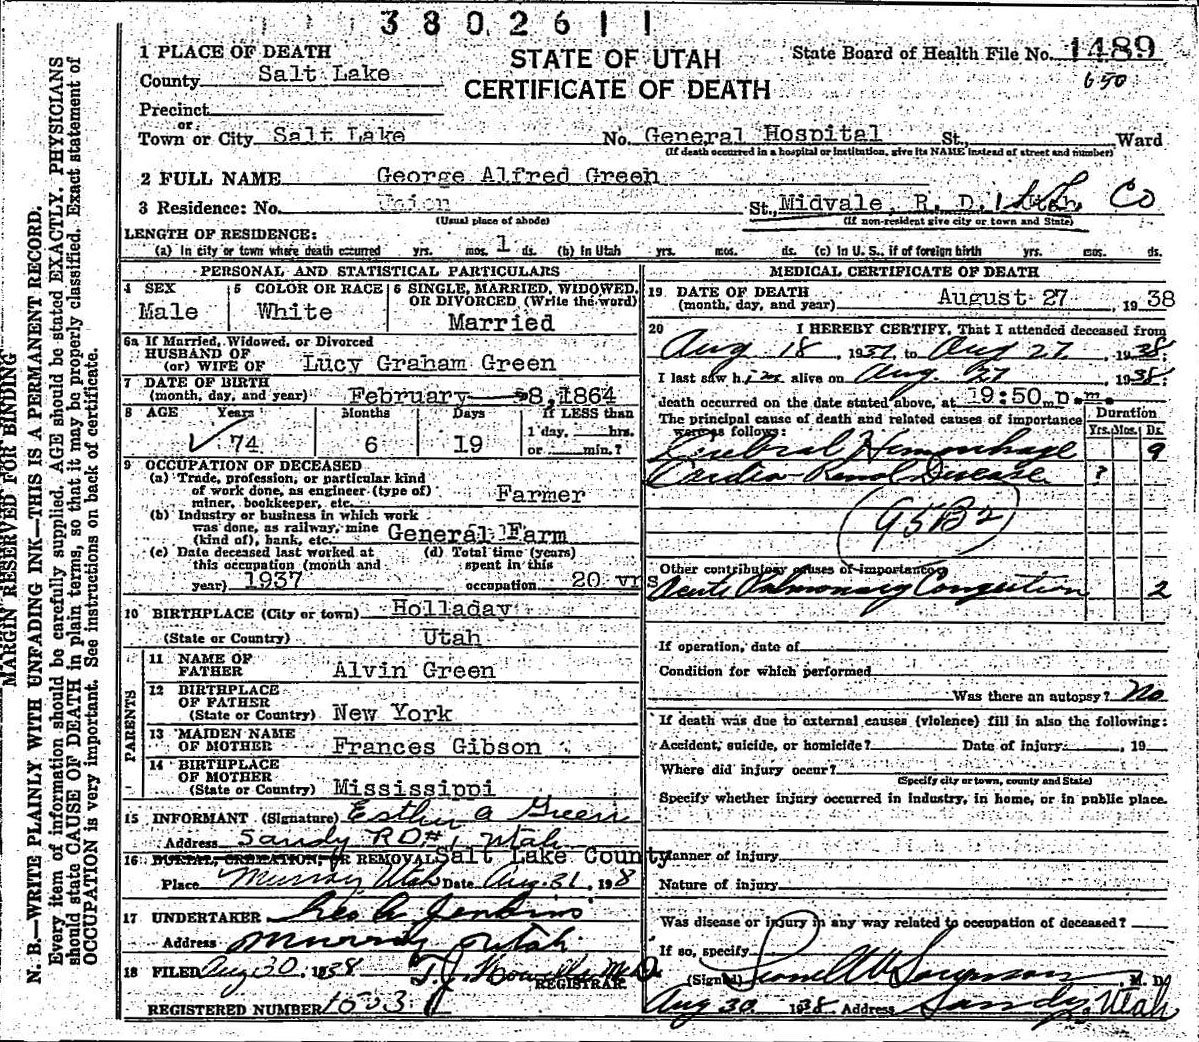 3802611
1 PLACE OF DEATH
STATE OF UTAH
CERTIFICATE OF DEATH
State Board of Health File No. 1489
650
County Salt Lake
Precinct
or
Town or City Salt Lake No. General Hospital St., Ward
(If death occurred in a hospital or institution, give its NAME instead of street and number)
2 FULL NAME George Alfred Green
3 Residence: No. Union St., Midvale, R. D. 1 Co
(Usual place of abode) (If non-resident give city or town and State)
LENGTH OF RESIDENCE:
(a) In city or town where death occurred yrs. mos. 1 ds. (b) In Utah yrs. mos. ds. (c) In U. S., if of foreign birth yrs. mos. ds.
PERSONAL AND STATISTICAL PARTICULARS
4 SEX
Male
5 COLOR OR RACE
White
6 SINGLE, MARRIED, WIDOWED,
OR DIVORCED (Write the word)
Married
6a If Married, Widowed, or Divorced
HUSBAND OF
(or) WIFE OF Lucy Graham Green
7 DATE OF BIRTH
(month, day, and year) February 8, 1864
8 AGE Years Months Days If LESS than
74 6 19 1 day, hrs.
or min.?
9 OCCUPATION OF DECEASED
(a) Trade, profession, or particular kind
of work done, as engineer (type of)
miner, bookkeeper, etc. Farmer
(b) Industry or business in which work
was done, as railway, mine
(kind of), bank, etc. General Farm
(c) Date deceased last worked at
this occupation (month and
year) 1937
(d) Total time (years)
spent in this
occupation 20 yrs
10 BIRTHPLACE (City or town) Holladay
(State or Country) Utah
PARENTS
11 NAME OF
FATHER Alvin Green
12 BIRTHPLACE
OF FATHER
(State or Country) New York
13 MAIDEN NAME
OF MOTHER Frances Gibson
14 BIRTHPLACE
OF MOTHER
(State or Country) Mississippi
15 INFORMANT (Signature) Esther A Green
Address Sandy RD#1, Utah
16 BURIAL, CREMATION, OR REMOVAL Salt Lake County
Place Murray Utah Date Aug. 31, 1938
17 UNDERTAKER Geo A Jenkins
Address Murray Utah
18 FILED Aug 30, 1938
REGISTRAR.
REGISTERED NUMBER 1503
MEDICAL CERTIFICATE OF DEATH
19 DATE OF DEATH
(month, day, and year) August 27, 1938
20 I HEREBY CERTIFY, That I attended deceased from
Aug 18, 1937 to Aug 27, 1938;
I last saw him alive on Aug. 27, 1938;
death occurred on the date stated above, at 19:50 m p.m.
The principal cause of death and related causes of importance
were as follows:
Duration
Yrs. Mos. Ds.
Cerebral Hemorrhage 9
Cardio-Renal Disease ?
(95B2)
Other contributory causes of importance
Acute Pulmonary Congestion 2
If operation, date of
Condition for which performed
Was there an autopsy? No
If death was due to external causes (violence) fill in also the following:
Accident, suicide, or homicide? Date of injury, 19
Where did injury occur?
(Specify city or town, county and State)
Specify whether injury occurred in industry, in home, or in public place.
Manner of injury
Nature of injury
Was disease or injury in any way related to occupation of deceased?
If so, specify
(Signed) Sorenson M. D.
Aug 30 1938 Address Sandy, Utah
MARGIN RESERVED FOR BINDING
N. B.—WRITE PLAINLY WITH UNFADING INK—THIS IS A PERMANENT RECORD.
Every item of information should be carefully supplied. AGE should be stated EXACTLY. PHYSICIANS
should state CAUSE OF DEATH in plain terms, so that it may be properly classified. Exact statement of
OCCUPATION is very important. See instructions on back of certificate.